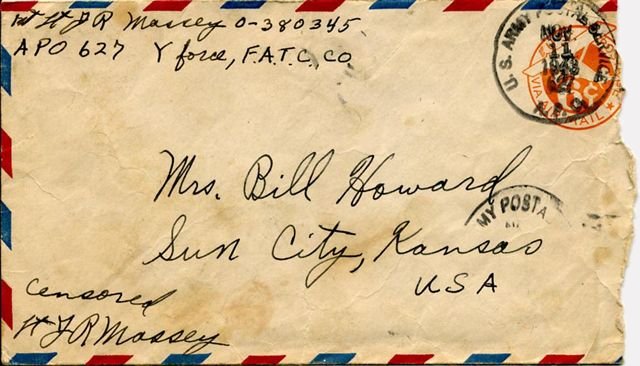 1st Lt J R Massey O-380345
APO 627 Y force, F.A.T.C. Co.
U.S. ARMY POSTAL SERVICE
NOV
11
1943
A.P.O.
VIA AIR MAIL
Mrs. Bill Howard
MY POSTA
Sun City, Kansas
USA
Censored
Lt J R Massey